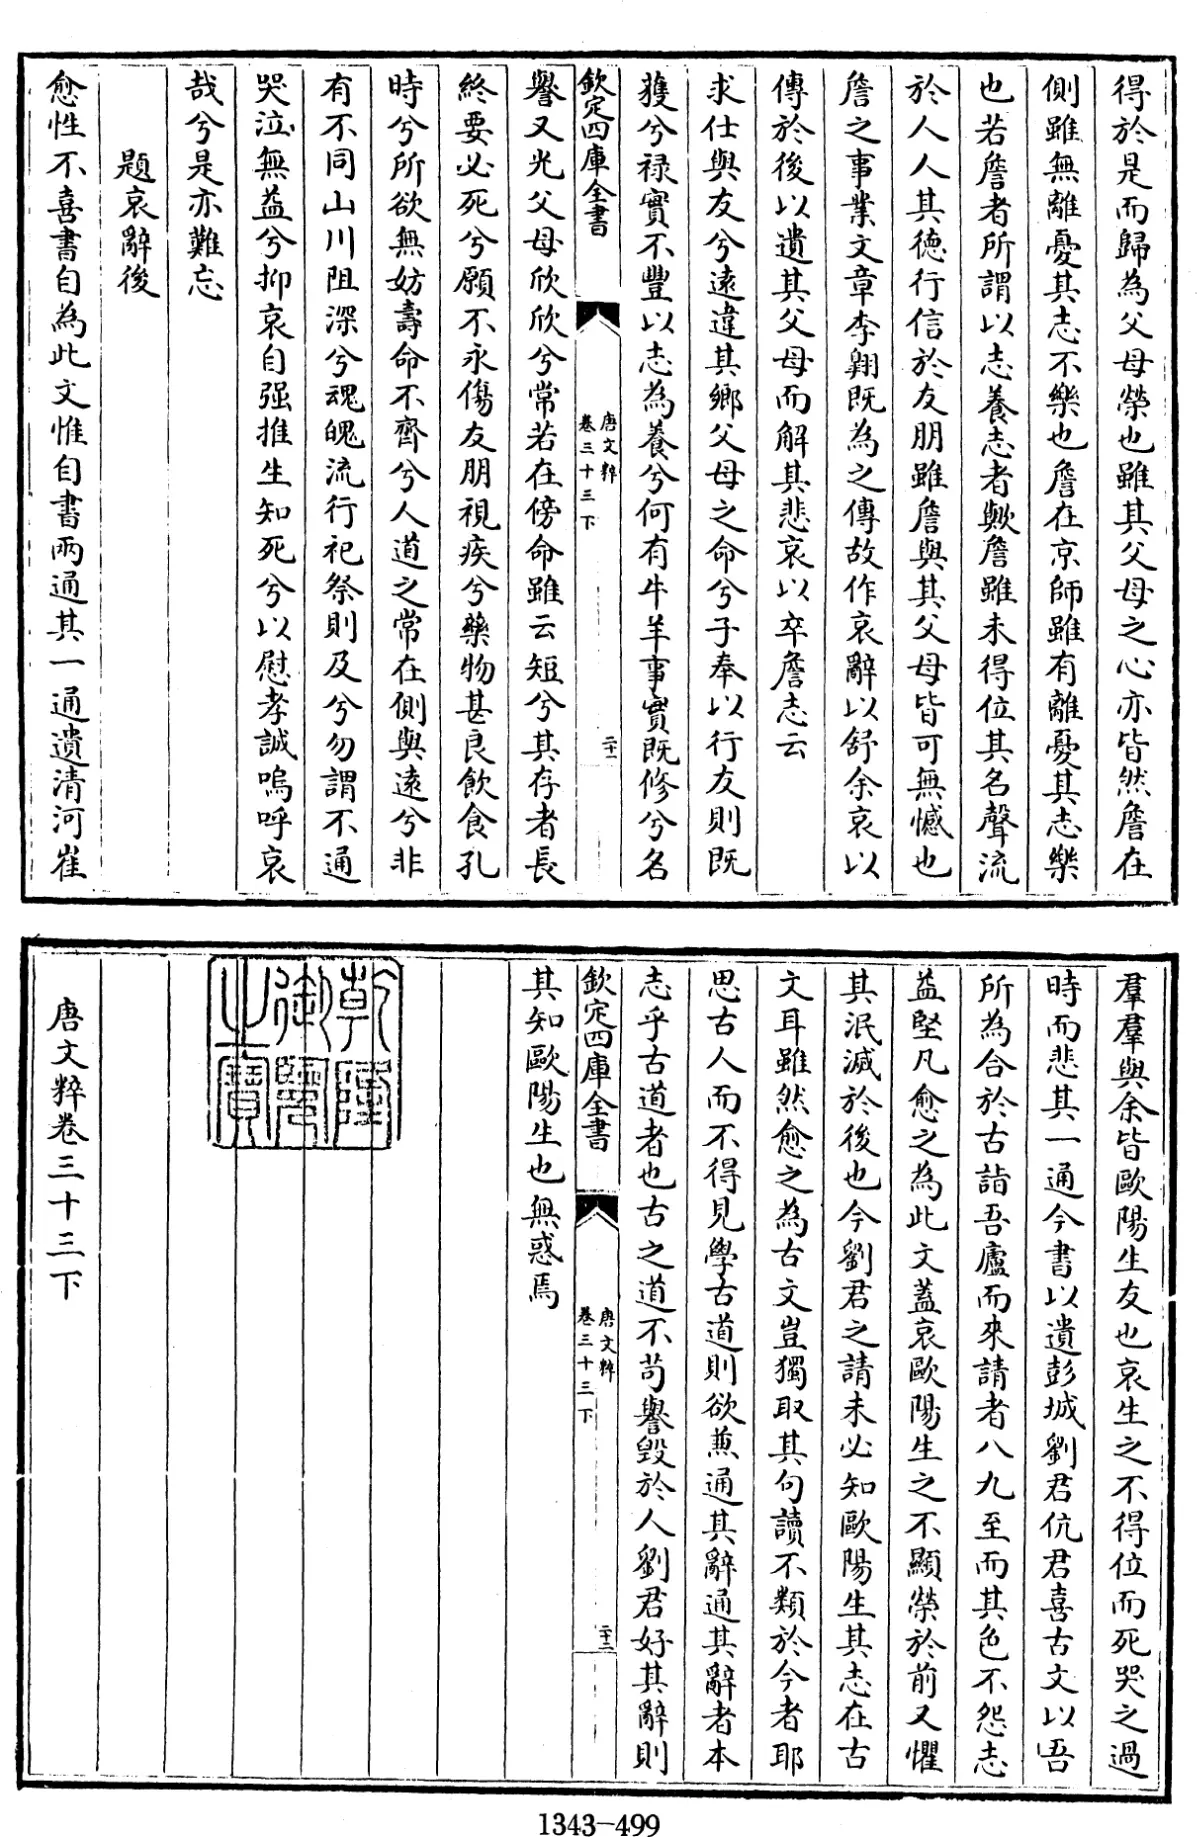 得於是而歸為父母榮也雖其父母之心亦皆然詹在
側雖無離憂其志不樂也詹在京師雖有離憂其志樂
也若詹者所謂以志養志者歟詹雖未得位其名聲流
於人人其德行信於友朋雖詹與其父母皆可無憾也
詹之事業文章李翺既為之傳故作哀辭以舒余哀以
傳於後以遺其父母而解其悲哀以卒詹志云
求仕與友兮遠違其鄉父母之命兮子奉以行友則既
獲兮禄實不豐以志為養兮何有牛羊事實既修兮名
欽定四庫全書
唐文粹
卷三十三下
二十一
譽又光父母欣欣兮常若在傍命雖云短兮其存者長
終要必死兮願不永傷友朋視疾兮藥物甚良飲食孔
時兮所欲無妨壽命不齊兮人道之常在側與遠兮非
有不同山川阻深兮魂魄流行祀祭則及兮勿謂不通
哭泣無益兮抑哀自强推生知死兮以慰孝誠嗚呼哀
哉兮是亦難忘
題哀辭後
愈性不喜書自為此文惟自書兩通其一通遺清河崔
羣羣與余皆歐陽生友也哀生之不得位而死哭之過
時而悲其一通今書以遺彭城劉君伉君喜古文以吾
所為合於古詣吾廬而來請者八九至而其色不怨志
益堅凡愈之為此文蓋哀歐陽生之不顯榮於前又懼
其泯滅於後也今劉君之請未必知歐陽生其志在古
文耳雖然愈之為古文豈獨取其句讀不類於今者耶
思古人而不得見學古道則欲兼通其辭通其辭者本
志乎古道者也古之道不苟譽毀於人劉君好其辭則
欽定四庫全書
唐文粹
卷三十三下
二十二
其知歐陽生也無惑焉
乾隆
御覽
之寶
唐文粹卷三十三下
1343-499